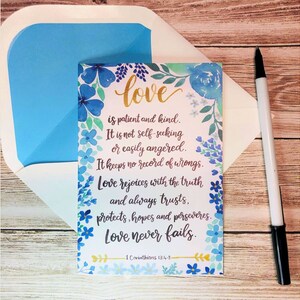 love
is patient and kind.
It is not self-seeking
or easily angered.
It keeps no record of wrongs.
Love rejoices with the truth
and always trusts,
protects, hopes and perseveres.
Love never fails.
1 Corinthians 13:4-8